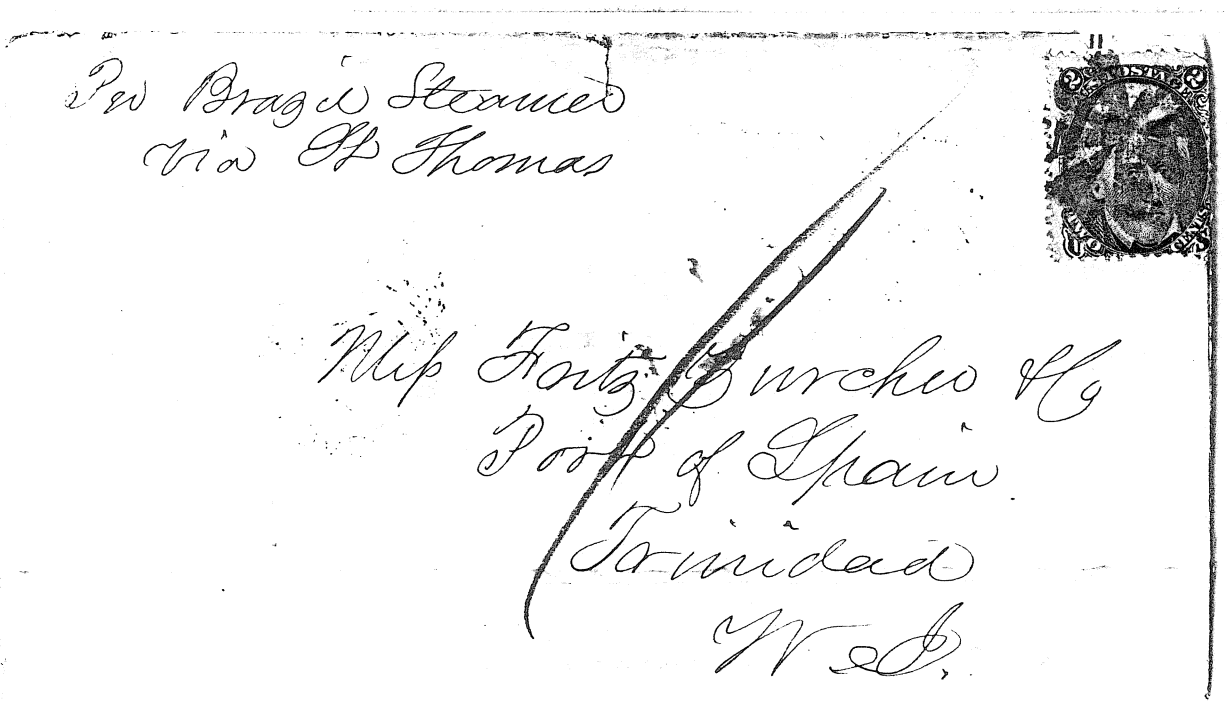 Per Brazil Steamer
via St Thomas
2 2
TWO CENTS
Mess Fritz Zurcher & Co
Port of Spain
Trinidad
W. I.